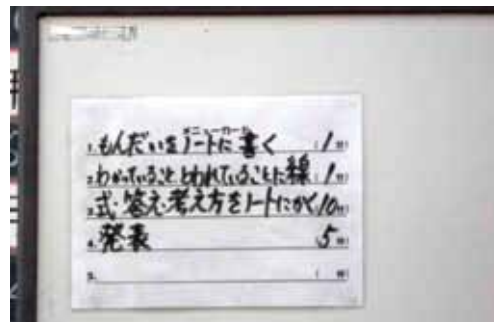 メニューカード
1. もんだいをノートに書く (1分)
2. わかっていること とわれていることに線 (1分)
3. 式・答え・考え方をノートにかく(10分)
4. 発表 (5分)
5. ( 分)